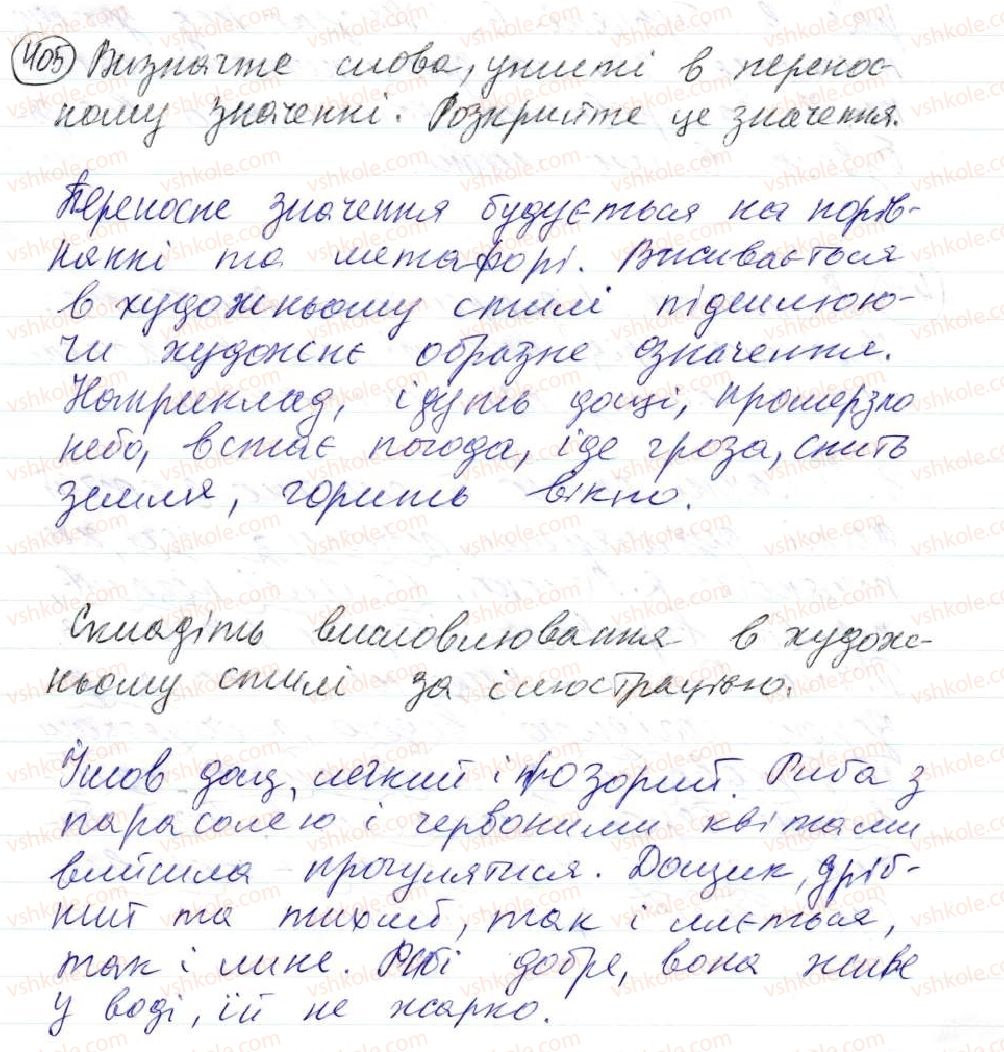 405 Визначте слова, ужиті в перенос-
ному значенні. Розкрийте це значення.
Переносне значення будується на порів-
нянні та метафорі. Вживається
в художньому стилі підсилюю-
чи художнє образне значення.
Наприклад, ідуть дощі, промерзло
небо, встає погода, іде гроза, спить
земля, горить вікно.
Складіть висловлювання в худож-
ньому стилі за ілюстрацією.
Ішов дощ, легкий і прозорий. Риба з
парасолею і червоними квітами
вийшла прогулятися. Дощик, дріб-
ний та тихий, так і ллється,
так і лине. Рибі добре, вона живе
у воді, їй не жарко.